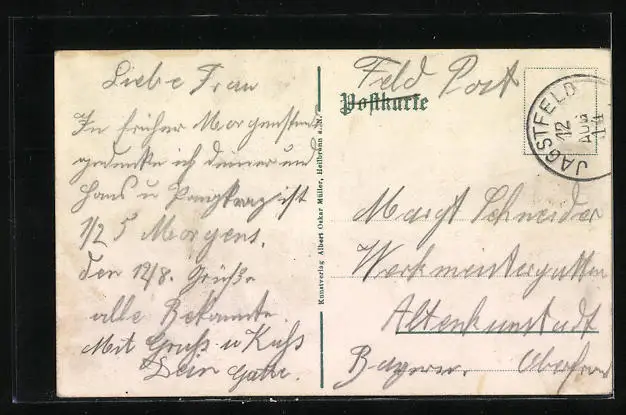 Liebe Frau
In früher Morgenstunde
gedenke ich deiner und
Hans u ist
1/2 5 Morgens.
den 12/8. Grüße
alle Bekannte.
Mit Gruß u Kuß
Dein Gatte.
Kunstverlag Albert Oskar Müller, Heilbronn a. N.
Feld Post
Postkarte
JAGSTFELD
12
AUG
14
Margt Schneider
Werkmeistersgattin
Altenkunstadt
Bayern. Oberfran